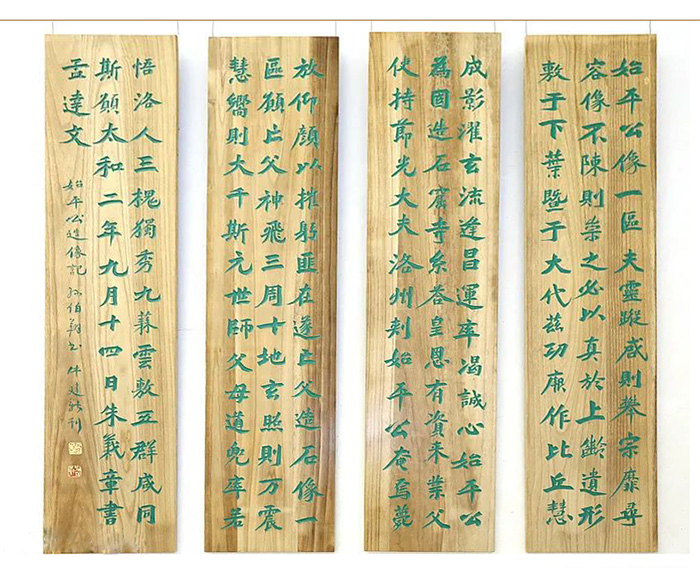 始平公像一區夫靈蹤啟則攀宗靡尋
容像不陳則崇之必以真於上齡遺形
敷于下葉暨于大代茲功厥作比丘慧
成影濯玄流逢昌運率渴誠心始平公
為國造石窟寺系荅皇恩有資来業父
使持節光大夫洛州刺始平公奄焉薨
放仰顏以摧躬匪在遂亡父造石像一
區願亡父神飛三周十地玄照則万震
慧嚮則大千斯元世師父母道兜率若
悟洛人三槐獨秀九蕀雲敷五群咸同
斯願太和二年九月十四日朱義章書
孟達文
始平公造像記 孙伯翔书